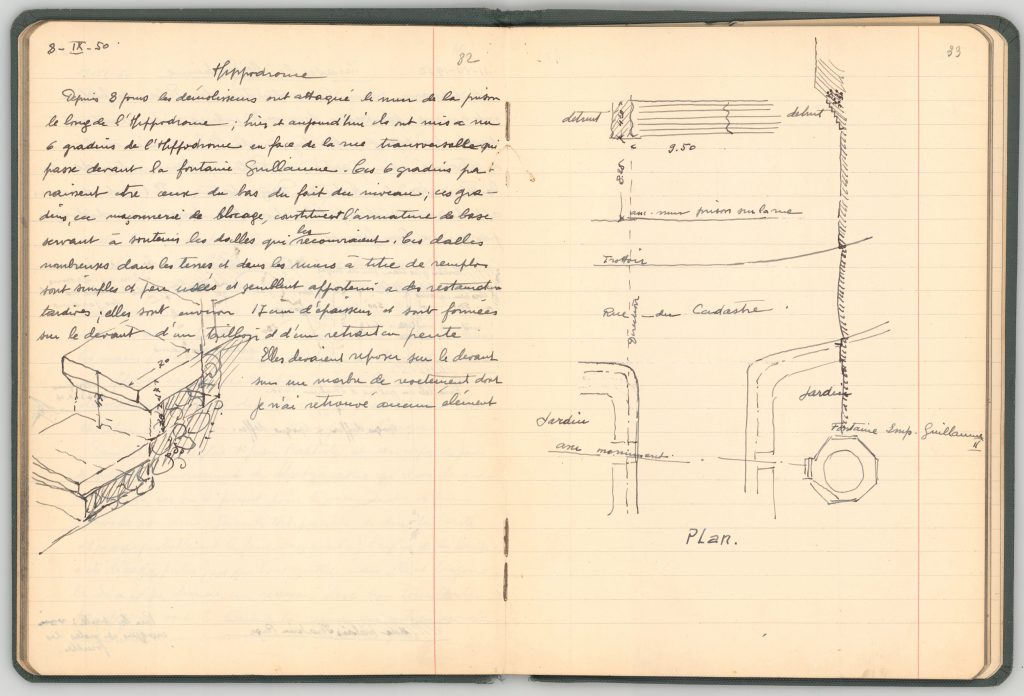 8-IX-50
32
Hippodrome
Depuis 3 jours les démolisseurs ont attaqué le mur de la prison
le long de l'Hippodrome ; hier et aujourd'hui ils ont mis a nu
6 gradins de l'Hippodrome en face de la rue transversale qui
passe devant la fontaine Guillaume. Ces 6 gradins pa-
raissent être ceux du bas du fait du niveau ; ces gra-
dins, en maçonnerie de blocage, constituent l'armature de base
servant à soutenir les dalles qui les recouvraient. Ces dalles
nombreuses dans les terres et dans les murs à titre de remplois
sont simples et peu usées et semblent appartenir a des restaurations
tardives ; elles sont environ 17 cm d'épaisseur et sont formées
sur le devant d'un et d'un retrait en pente
Elles devaient reposer sur le devant
sur un marbre de revetement dont
je n'ai retrouvé aucun élément
70
17
33
détruit
détruit
9.50
anc. mur prison sur la rue
Trottoir
Rue du Cadastre.
Direction
Jardin
Jardin
Fontaine Emp. Guillaume
II
axe monument.
Plan.